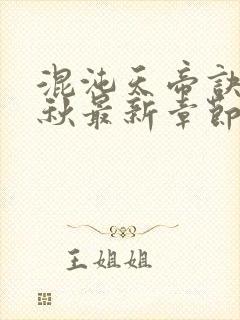 混沌天帝诀
秋最新章節
王姐姐